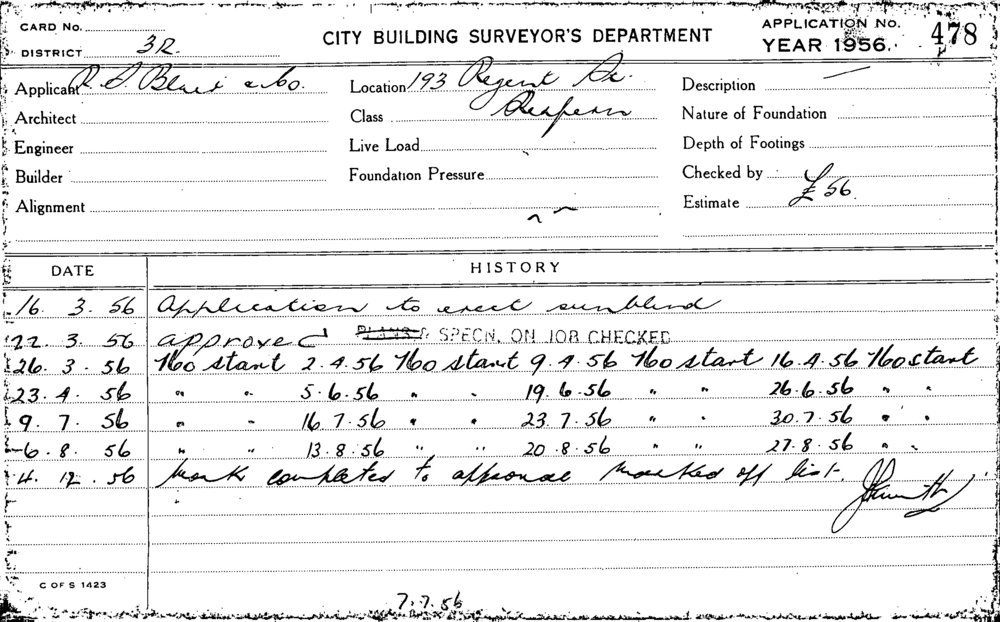 CARD No.
DISTRICT 3R
CITY BUILDING SURVEYOR'S DEPARTMENT
APPLICATION No. 478
YEAR 1956.
Applicant R. S. & Co.
Location 193 Regent St.
Description —
Architect
Class Redfern
Nature of Foundation
Engineer
Live Load
Depth of Footings
Builder
Foundation Pressure
Checked by
Alignment
Estimate £ 56.
DATE HISTORY
16. 3. 56 Application to erect sunblind
22. 3. 56 approved PLANS & SPECN. ON JOB CHECKED
26. 3. 56 No start 2.4.56 No start 9.4.56 No start 16.4.56 No start
23. 4. 56 " " 5.6.56 " " 19.6.56 " " 26.6.56 " "
9. 7. 56 " " 16.7.56 " " 23.7.56 " " 30.7.56 " "
6. 8. 56 " " 13.8.56 " " 20.8.56 " " 27.8.56 " "
4. 12. 56 Work completed to approval Marked off list.
C OF S 1423
7.7.56